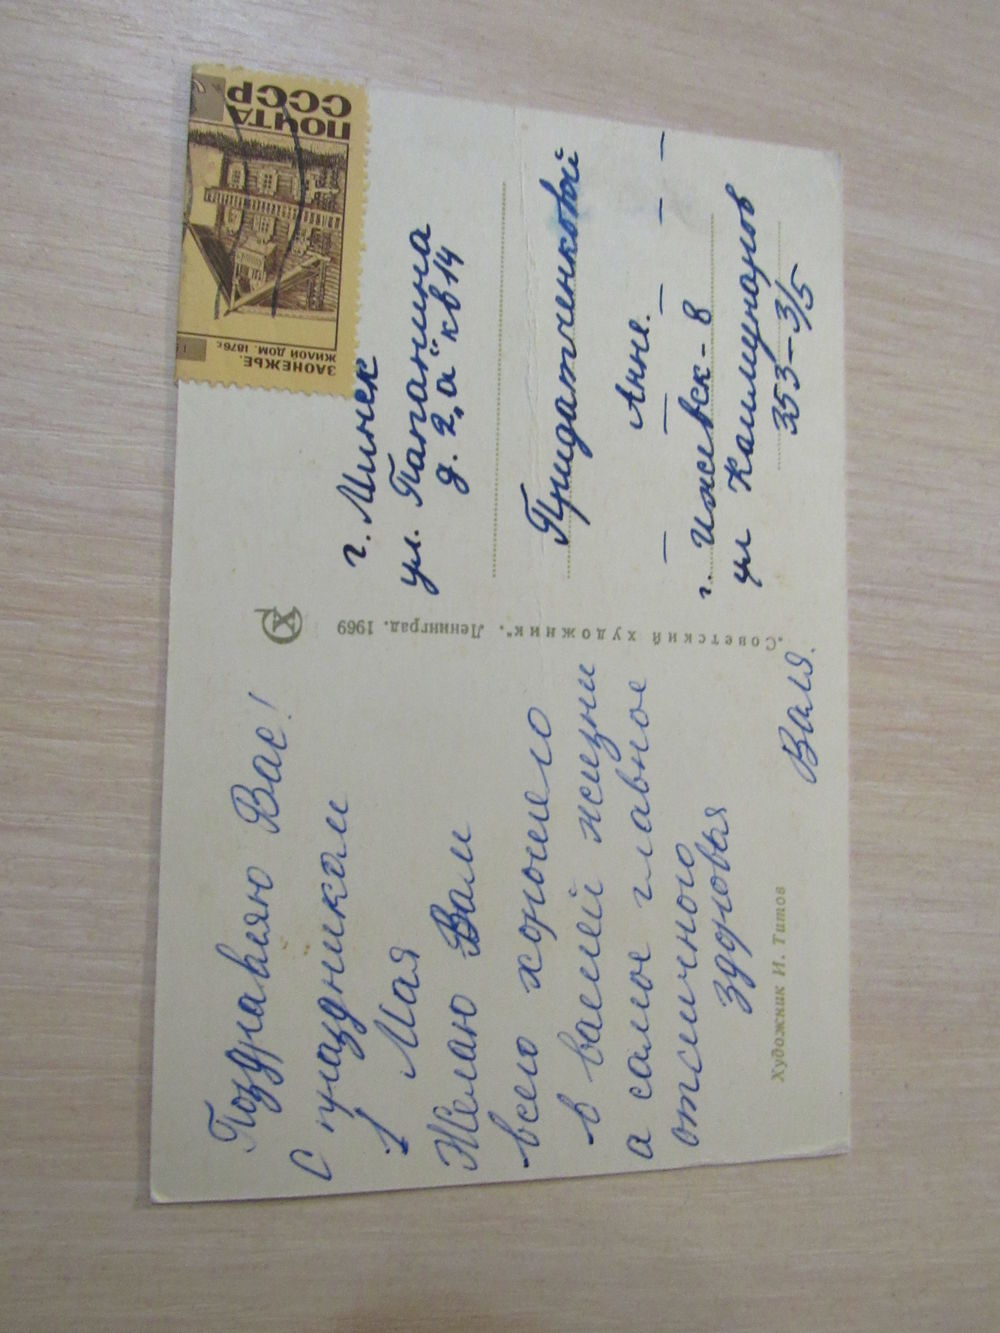 Поздравляю Вас!
С праздником
1 Мая
Желаю Вам
всего хорошего
в вашей жизни
а самое главное
отличного
здоровья
Валя.
Художник И. Титов
„Советский художник“. Ленинград. 1969
ПОЧТА
СССР
ЗАОНЕЖЬЕ.
ЖИЛОЙ ДОМ. 1876г.
г. Минск
ул. Папанина
д. 2„а“ кв 14
Придатченковой
Анне.
г. Ижевск-8
ул Коммунаров
353-3/5